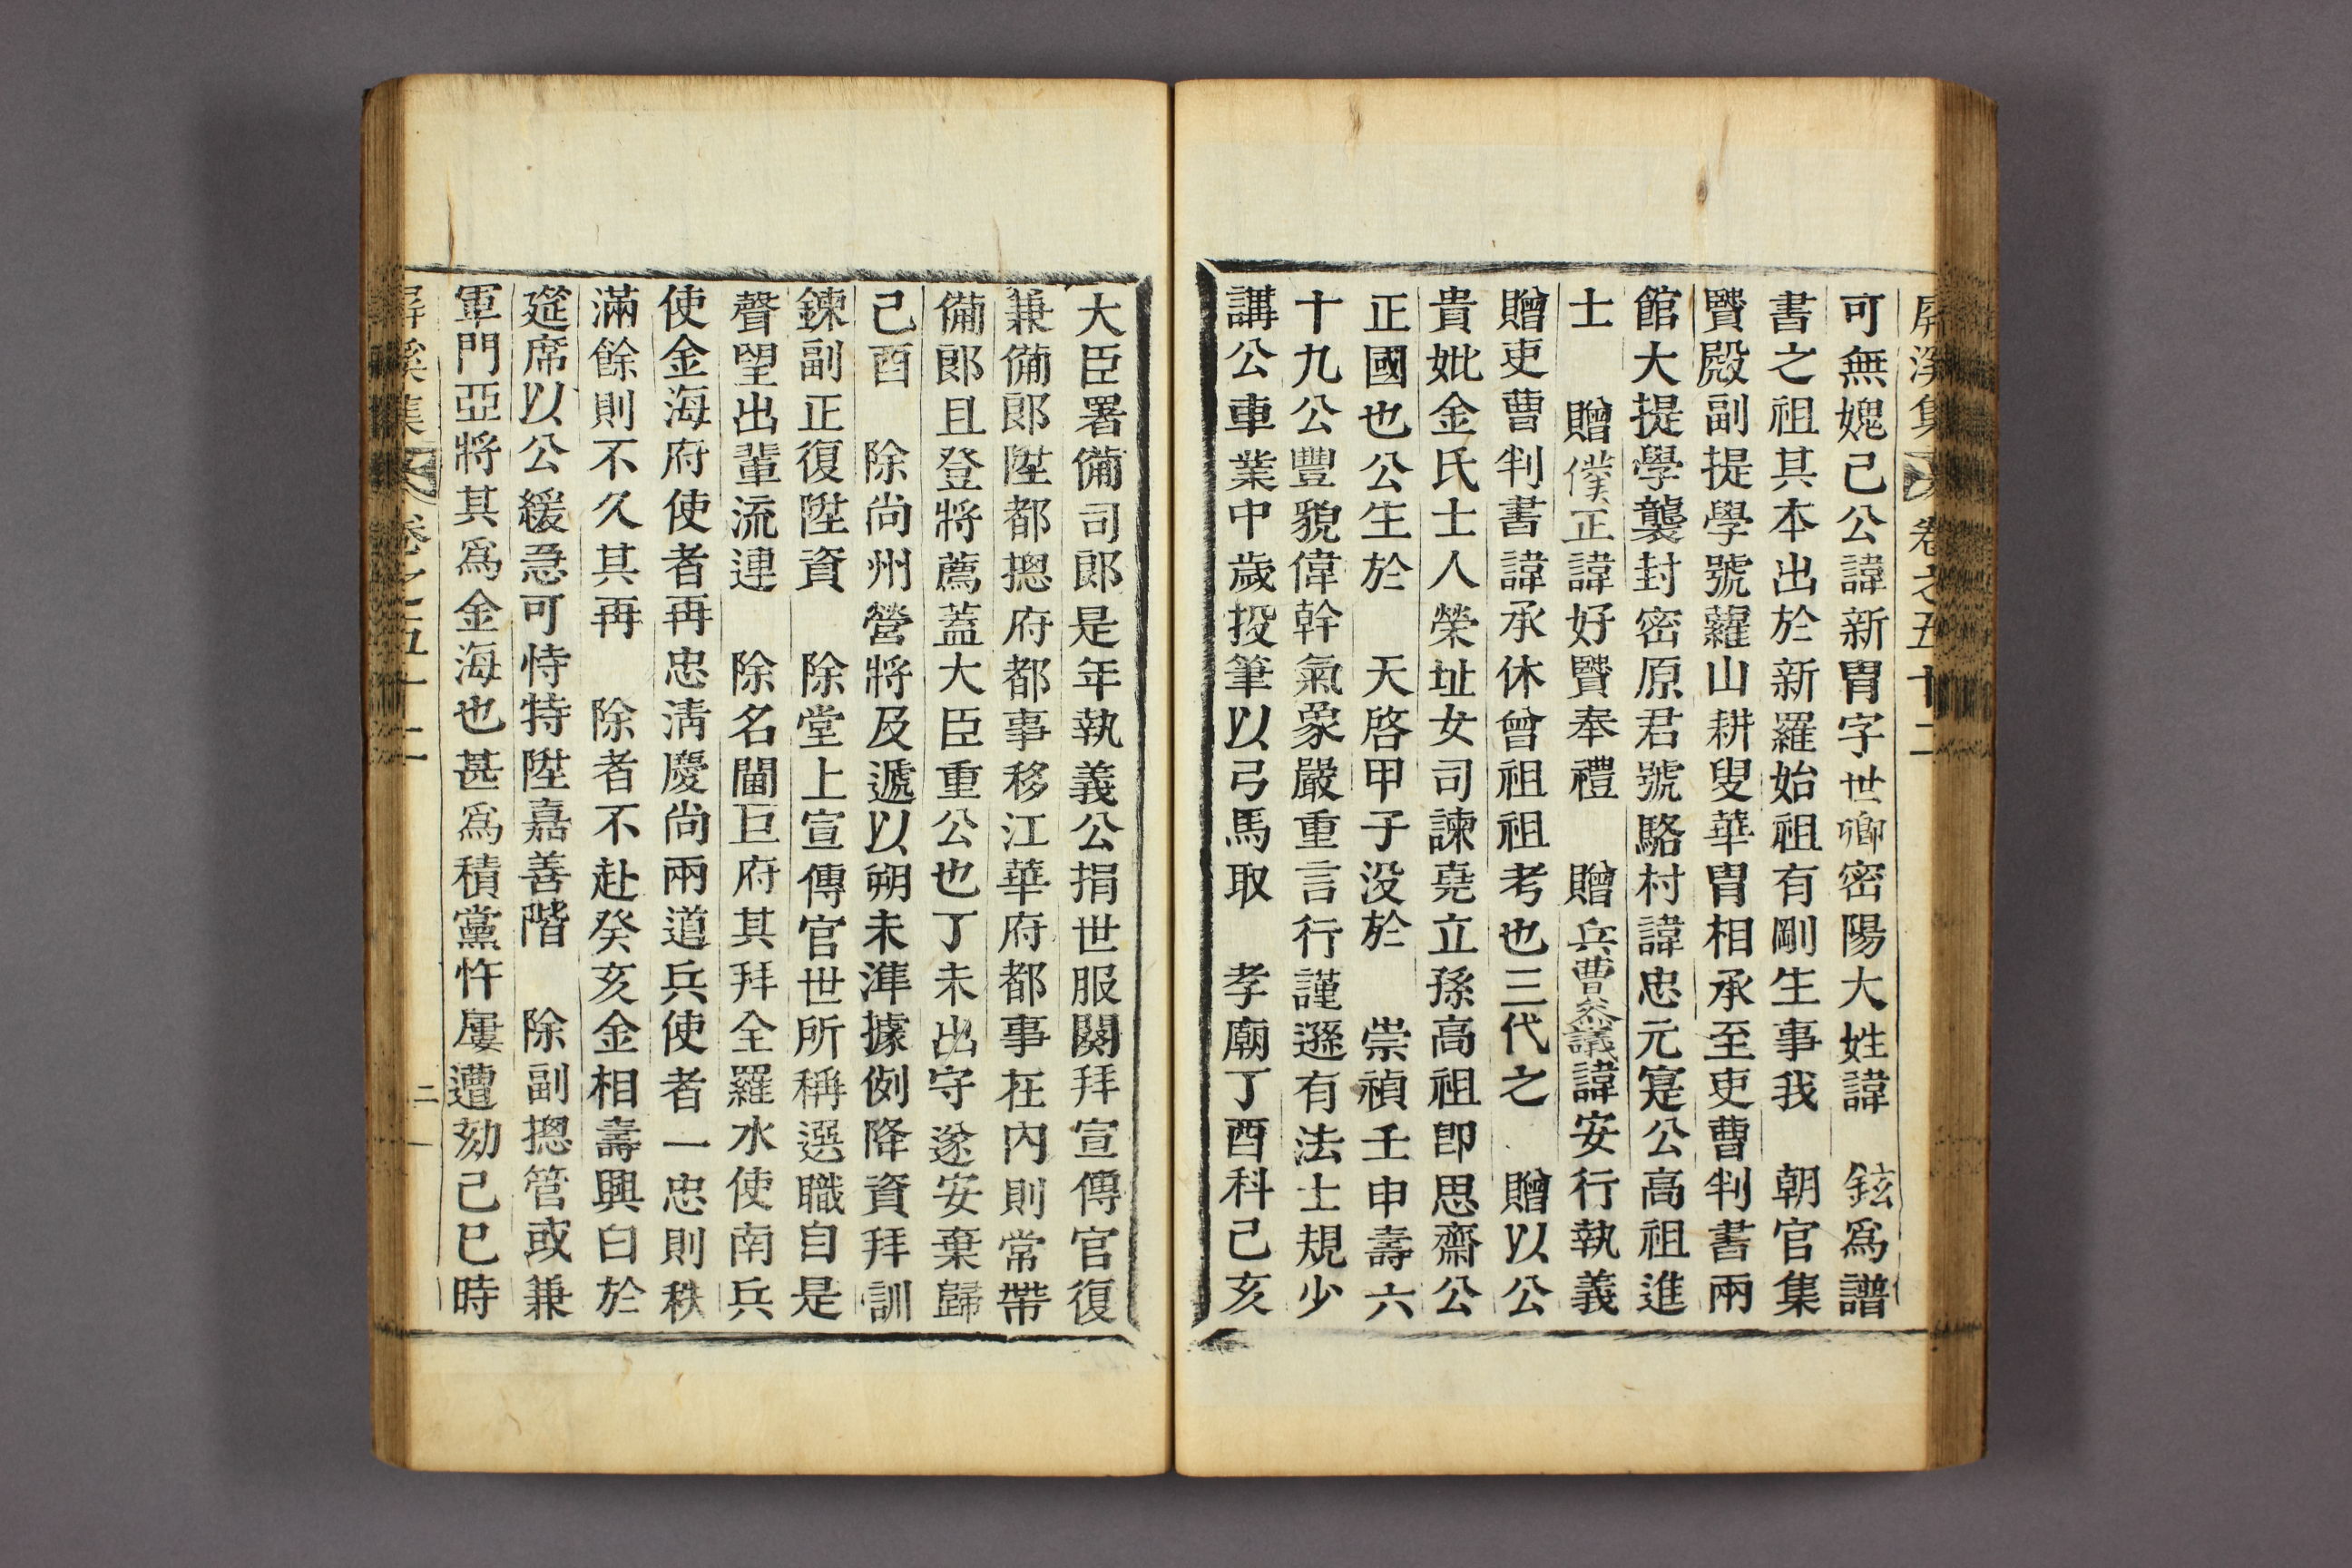 屛溪集 卷之五十二
可無媿己公諱新胄字世卿密陽大姓諱 鉉爲譜
書之祖其本出於新羅始祖有剛生事我 朝官集
賢殿副提學號蘿山耕叟華胄相承至吏曹判書兩
館大提學襲封密原君號駱村諱忠元寔公高祖進
士 贈僕正諱好賢奉禮 贈兵曹叅議諱安行執義
贈吏曹判書諱承休曾祖祖考也三代之 贈以公
貴妣金氏士人榮址女司諫堯立孫高祖卽思齋公
正國也公生於 天啓甲子沒於 崇禎壬申壽六
十九公豐貌偉幹氣象嚴重言行謹遜有法士規少
講公車業中歲投筆以弓馬取 孝廟丁酉科己亥
大臣署備司郎是年執義公捐世服闋拜宣傳官復
兼備郎陞都摠府都事移江華府都事在內則常帶
備郎且登將薦蓋大臣重公也丁未出守遂安棄歸
己酉 除尙州營將及遞以朔未準據例降資拜訓
鍊副正復陞資 除堂上宣傳官世所稱選職自是
聲望出輩流連 除名閫巨府其拜全羅水使南兵
使金海府使者再忠淸慶尙兩道兵使者一忠則秩
滿餘則不久其再 除者不赴癸亥金相壽興白於
筵席以公緩急可恃特陞嘉善階 除副摠管或兼
軍門亞將其爲金海也甚爲積黨忤屢遭劾己巳時
屛溪集 卷之五十二 二